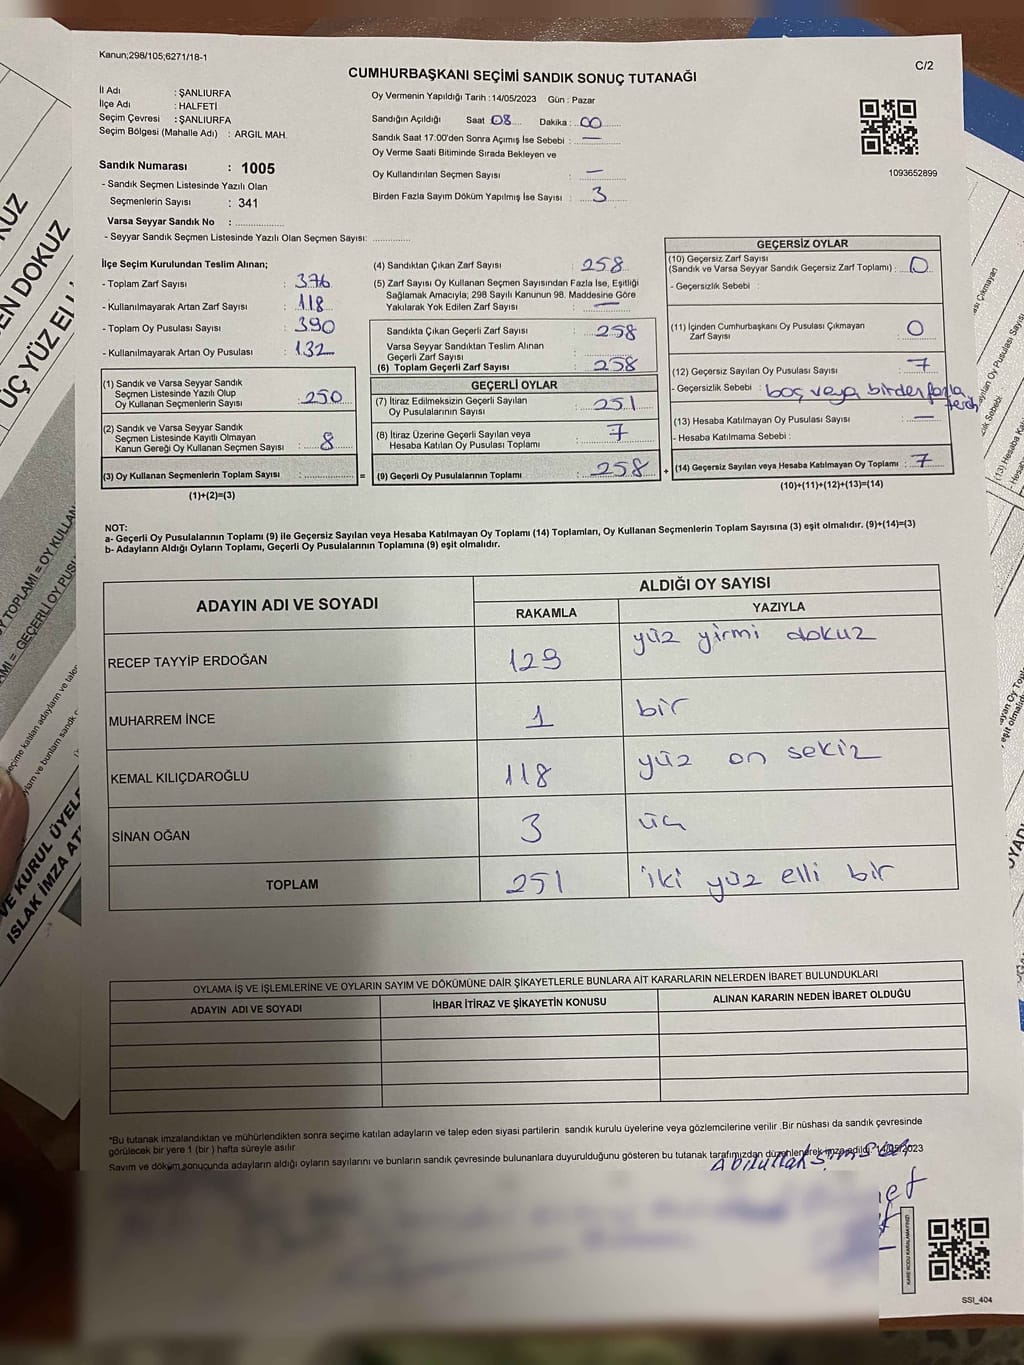 Kanun;298/105;6271/18-1
C/2
CUMHURBAŞKANI SEÇİMİ SANDIK SONUÇ TUTANAĞI
İl Adı : ŞANLIURFA
İlçe Adı : HALFETİ
Seçim Çevresi : ŞANLIURFA
Seçim Bölgesi (Mahalle Adı) : ARGIL MAH.
Sandık Numarası : 1005
- Sandık Seçmen Listesinde Yazılı Olan
Seçmenlerin Sayısı : 341
Varsa Seyyar Sandık No :
- Seyyar Sandık Seçmen Listesinde Yazılı Olan Seçmen Sayısı:
Oy Vermenin Yapıldığı Tarih : 14/05/2023 Gün : Pazar
Sandığın Açıldığı Saat 08 Dakika : 00
Sandık Saat 17:00'den Sonra Açımış İse Sebebi : —
Oy Verme Saati Bitiminde Sırada Bekleyen ve
Oy Kullandırılan Seçmen Sayısı : —
Birden Fazla Sayım Döküm Yapılmış İse Sayısı : 3
1093652899
İlçe Seçim Kurulundan Teslim Alınan;
- Toplam Zarf Sayısı : 376
- Kullanılmayarak Artan Zarf Sayısı : 118
- Toplam Oy Pusulası Sayısı : 390
- Kullanılmayarak Artan Oy Pusulası : 132
(1) Sandık ve Varsa Seyyar Sandık
Seçmen Listesinde Yazılı Olup
Oy Kullanan Seçmenlerin Sayısı : 250
(2) Sandık ve Varsa Seyyar Sandık
Seçmen Listesinde Kayıtlı Olmayan
Kanun Gereği Oy Kullanan Seçmen Sayısı : 8
(3) Oy Kullanan Seçmenlerin Toplam Sayısı :
(1)+(2)=(3)
(4) Sandıktan Çıkan Zarf Sayısı : 258
(5) Zarf Sayısı Oy Kullanan Seçmen Sayısından Fazla İse, Eşitliği
Sağlamak Amacıyla; 298 Sayılı Kanunun 98. Maddesine Göre
Yakılarak Yok Edilen Zarf Sayısı : —
Sandıkta Çıkan Geçerli Zarf Sayısı : 258
Varsa Seyyar Sandıktan Teslim Alınan
Geçerli Zarf Sayısı :
(6) Toplam Geçerli Zarf Sayısı : 258
GEÇERLİ OYLAR
(7) İtiraz Edilmeksizin Geçerli Sayılan
Oy Pusulalarının Sayısı : 251
(8) İtiraz Üzerine Geçerli Sayılan veya
Hesaba Katılan Oy Pusulası Toplamı : 7
= (9) Geçerli Oy Pusulalarının Toplamı : 258
GEÇERSİZ OYLAR
(10) Geçersiz Zarf Sayısı
(Sandık ve Varsa Seyyar Sandık Geçersiz Zarf Toplamı) : 0
- Geçersizlik Sebebi :
(11) İçinden Cumhurbaşkanı Oy Pusulası Çıkmayan
Zarf Sayısı : 0
(12) Geçersiz Sayılan Oy Pusulası Sayısı : 7
- Geçersizlik Sebebi : boş veya birden fazla
tercih
(13) Hesaba Katılmayan Oy Pusulası Sayısı : —
- Hesaba Katılmama Sebebi :
+ (14) Geçersiz Sayılan veya Hesaba Katılmayan Oy Toplamı : 7
(10)+(11)+(12)+(13)=(14)
NOT:
a- Geçerli Oy Pusulalarının Toplamı (9) ile Geçersiz Sayılan veya Hesaba Katılmayan Oy Toplamı (14) Toplamları, Oy Kullanan Seçmenlerin Toplam Sayısına (3) eşit olmalıdır. (9)+(14)=(3)
b- Adayların Aldığı Oyların Toplamı, Geçerli Oy Pusulalarının Toplamına (9) eşit olmalıdır.
ADAYIN ADI VE SOYADI
ALDIĞI OY SAYISI
RAKAMLA YAZIYLA
RECEP TAYYİP ERDOĞAN 129 yüz yirmi dokuz
MUHARREM İNCE 1 bir
KEMAL KILIÇDAROĞLU 118 yüz on sekiz
SİNAN OĞAN 3 üç
TOPLAM 251 iki yüz elli bir
OYLAMA İŞ VE İŞLEMLERİNE VE OYLARIN SAYIM VE DÖKÜMÜNE DAİR ŞİKAYETLERLE BUNLARA AİT KARARLARIN NELERDEN İBARET BULUNDUKLARI
ADAYIN ADI VE SOYADI İHBAR İTİRAZ VE ŞİKAYETİN KONUSU ALINAN KARARIN NEDEN İBARET OLDUĞU
*Bu tutanak imzalandıktan ve mühürlendikten sonra seçime katılan adayların ve talep eden siyasi partilerin sandık kurulu üyelerine veya gözlemcilerine verilir .Bir nüshası da sandık çevresinde
görülecek bir yere 1 (bir ) hafta süreyle asılır
Sayım ve döküm sonucunda adayların aldığı oyların sayılarını ve bunların sandık çevresinde bulunanlara duyurulduğunu gösteren bu tutanak tarafımızdan düzenlenerek imza edildi. 14/05/2023
KARE KODU KARALAMAYINIZ!
SSI_404
EN DOKUZ
ÜÇ YÜZ EL
VE KURUL ÜYEL
ISLAK İMZA AT